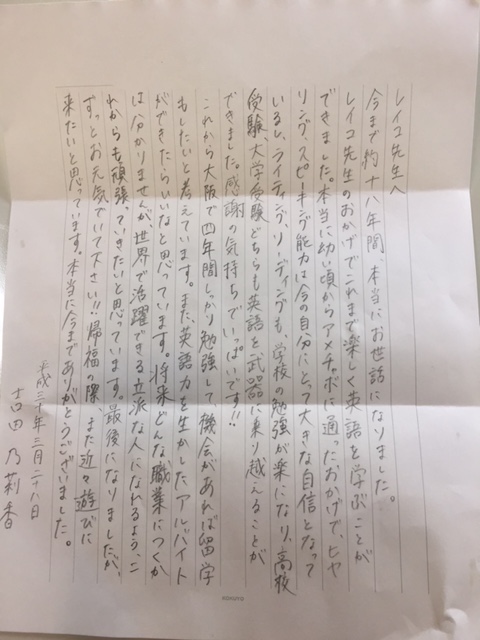 レイコ先生へ
今まで約十八年間、本当にお世話になりました。
レイコ先生のおかげでこれまで楽しく英語を学ぶことが
できました。本当に幼い頃からアメチャボに通ったおかげで、ヒヤ
リング、スピーキング能力は今の自分にとって大きな自信となって
いるし、ライティング、リーディングも、学校の勉強が楽になり、高校
受験、大学受験どちらも英語を武器に乗り越えることが
できました。感謝の気持ちでいっぱいです!!
これから大阪で四年間しっかり勉強して、機会があれば留学
もしたいと考えています。また、英語力を生かしたアルバイト
ができたらいいなと思っています。将来どんな職業につくか
は分かりませんが、世界で活躍できる立派な人になれるよう、こ
れからも頑張っていきたいと思っています。最後になりましたが、
ずっとお元気でいて下さい!!帰福の際、また近々遊びに
来たいと思っています。本当に今までありがとうございました。
平成三十年三月二十八日
吉田乃莉香